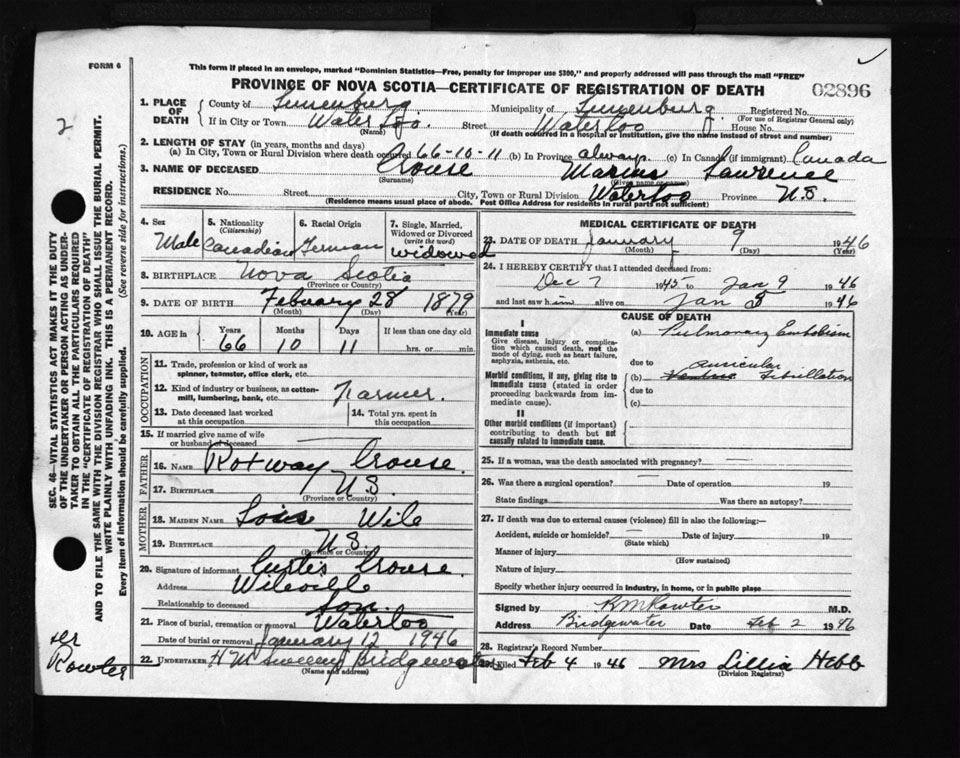 FORM 6
This form if placed in an envelope, marked "Dominion Statistics—Free, penalty for improper use $300," and properly addressed will pass through the mail "FREE"
PROVINCE OF NOVA SCOTIA—CERTIFICATE OF REGISTRATION OF DEATH
02896
2
SEC. 46—VITAL STATISTICS ACT MAKES IT THE DUTY
OF THE UNDERTAKER OR PERSON ACTING AS UNDER-
TAKER TO OBTAIN ALL THE PARTICULARS REQUIRED
IN THE "CERTIFICATE OF REGISTRATION OF DEATH"
AND TO FILE THE SAME WITH THE DIVISION REGISTRAR WHO SHALL ISSUE THE BURIAL PERMIT.
WRITE PLAINLY WITH UNFADING INK. THIS IS A PERMANENT RECORD.
Every item of information should be carefully supplied. (See reverse side for instructions.)
1. PLACE OF DEATH County of Lunenburg Municipality of Lunenburg Registered No.
(For use of Registrar General only)
If in City or Town Waterloo Street Waterloo House No.
(Name) (If death occurred in a hospital or institution, give the name instead of street and number)
2. LENGTH OF STAY (in years, months and days)
(a) In City, Town or Rural Division where death occurred 66-10-11 (b) In Province always (c) In Canada (if immigrant) Canada
3. NAME OF DECEASED Crouse Marius Lawrence
(Surname) (Given name or names)
RESIDENCE No. Street City, Town or Rural Division Waterloo Province N.S.
(Residence means usual place of abode. Post Office Address for residents in rural parts not sufficient)
4. Sex Male
5. Nationality (Citizenship) Canadian
6. Racial Origin German
7. Single, Married, Widowed or Divorced (write the word) widowed
8. BIRTHPLACE Nova Scotia
(Province or Country)
9. DATE OF BIRTH February 28 1879
(Month) (Day) (Year)
10. AGE in Years 66 Months 10 Days 11 If less than one day old hrs. or min.
OCCUPATION
11. Trade, profession or kind of work as spinner, teamster, office clerk, etc.
12. Kind of industry or business, as cotton-mill, lumbering, bank, etc. Farmer.
13. Date deceased last worked at this occupation
14. Total yrs. spent in this occupation
15. If married give name of wife or husband of deceased
FATHER
16. NAME Rotway Crouse.
17. BIRTHPLACE N.S.
(Province or Country)
MOTHER
18. MAIDEN NAME Lois Wile
19. BIRTHPLACE N.S.
(Province or Country)
20. Signature of informant Curtis Crouse.
Address Wileville
Relationship to deceased son.
21. Place of burial, cremation or removal Waterloo
Date of burial or removal January 12 1946
22. UNDERTAKER H M Sweeny Bridgewater
(Name and address)
Dr
Rowter
MEDICAL CERTIFICATE OF DEATH
23. DATE OF DEATH January 9 1946
(Month) (Day) (Year)
24. I HEREBY CERTIFY that I attended deceased from:
Dec 7 1945 to Jan 9 1946
and last saw him alive on Jan 8 1946
CAUSE OF DEATH
I
Immediate cause
Give disease, injury or complication which caused death, not the mode of dying, such as heart failure, asphyxia, asthenia, etc.
(a) Pulmonary Embolism
due to auricular
Morbid conditions, if any, giving rise to immediate cause (stated in order proceeding backwards from immediate cause).
(b) Fibrillation
due to
(c)
II
Other morbid conditions (if important) contributing to death but not causally related to immediate cause.
25. If a woman, was the death associated with pregnancy? —
26. Was there a surgical operation? — Date of operation 19
State findings Was there an autopsy?
27. If death was due to external causes (violence) fill in also the following:—
Accident, suicide or homicide? — Date of injury 19
(State which)
Manner of injury
(How sustained)
Nature of injury
Specify whether injury occurred in industry, in home, or in public place
Signed by R M Rowter M.D.
Address Bridgewater Date Feb 2 1946
28. Registrar's Record Number
Filed Feb 4 1946 Mrs Lillia Hebb
(Division Registrar)